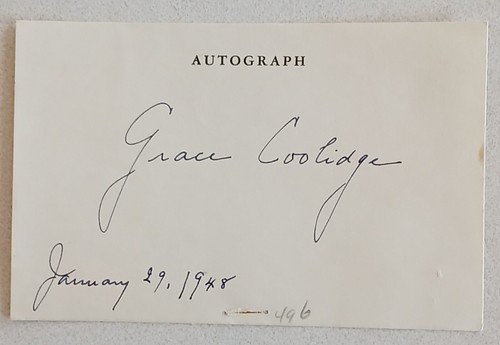 AUTOGRAPH
Grace Coolidge
January 29, 1948
496